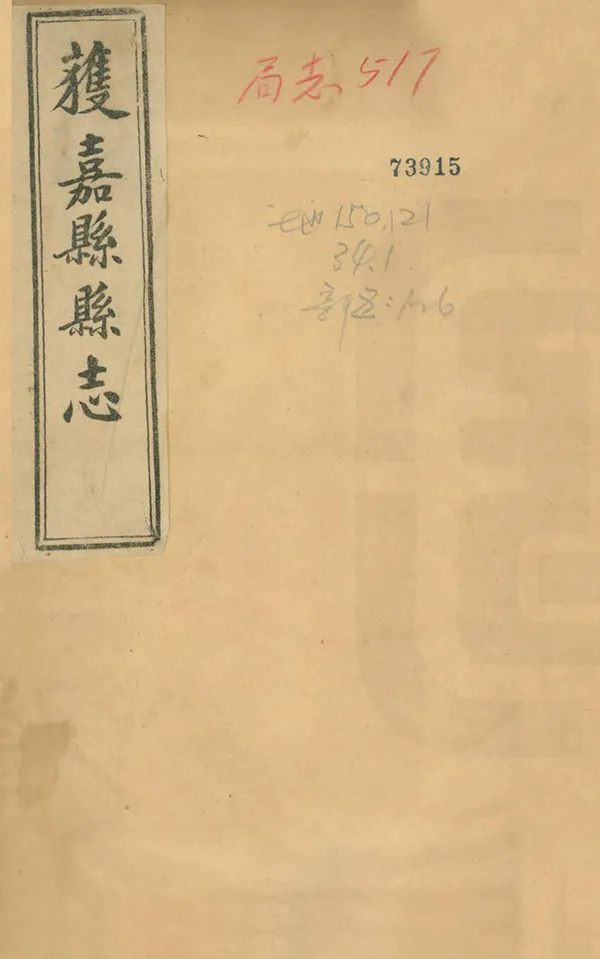 獲嘉縣縣志
局志 517
73915
150.121
34.1